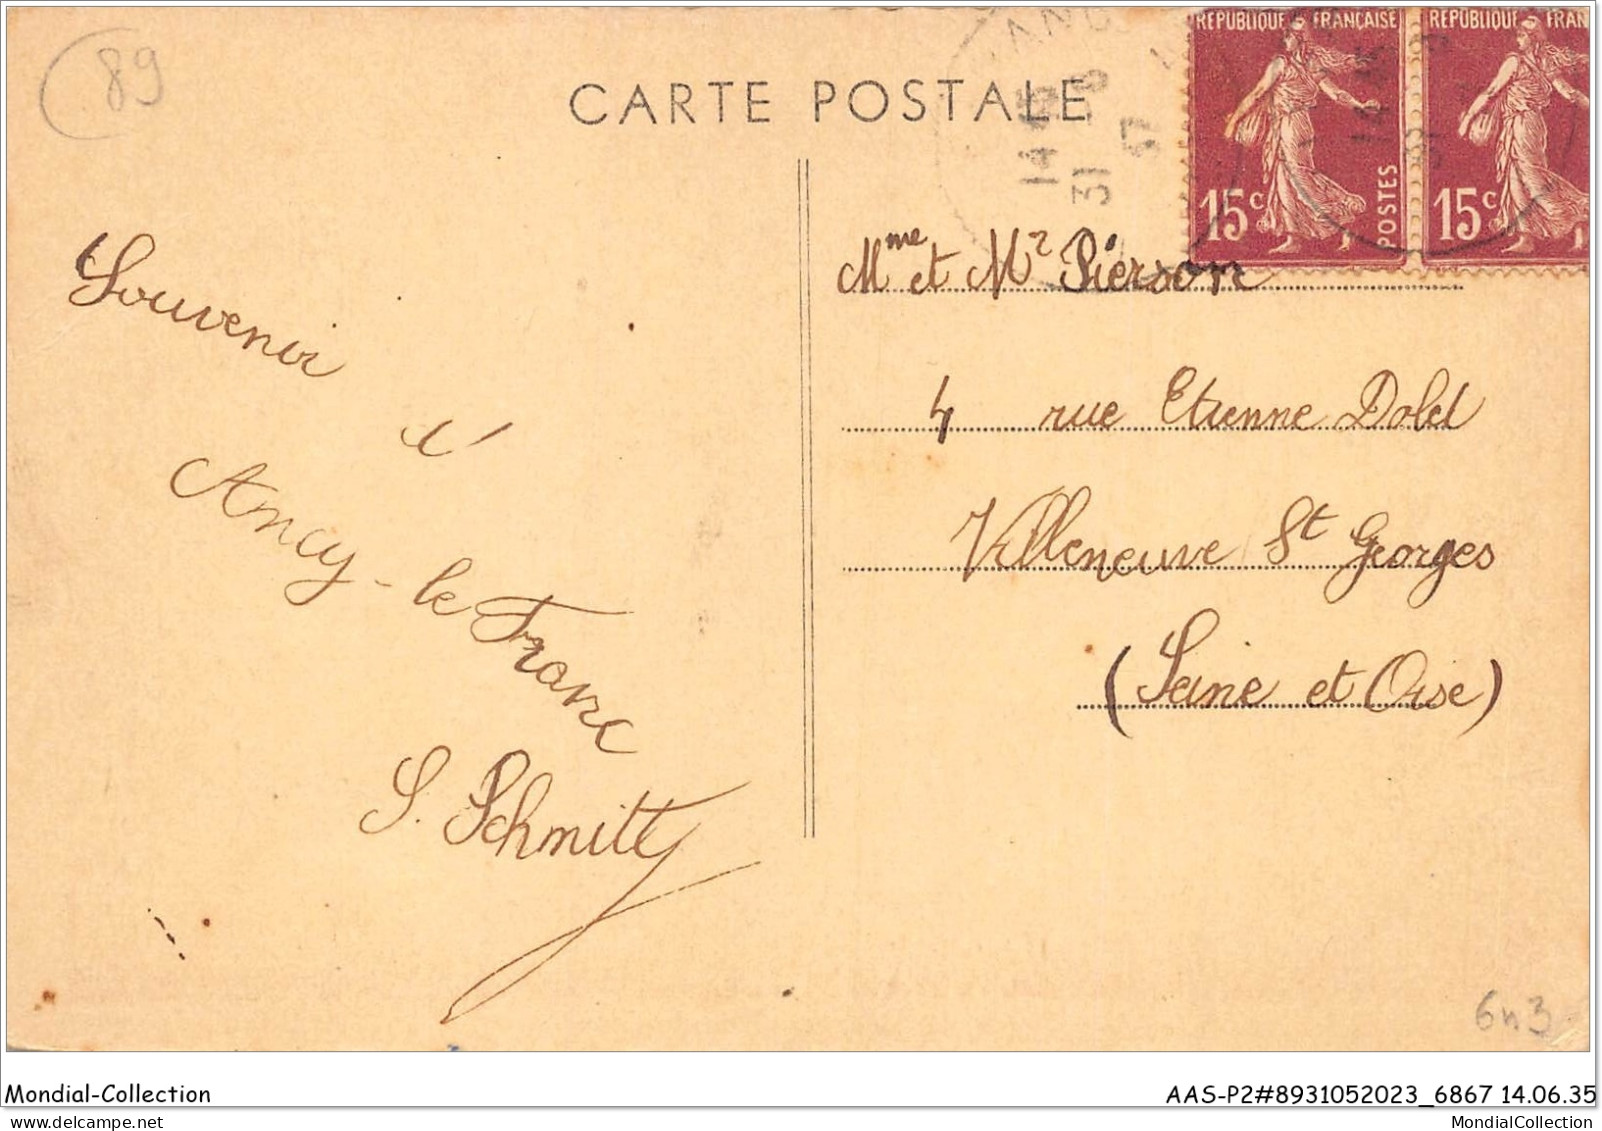 89
CARTE POSTALE
ANC
14 45
31 8
37
REPUBLIQUE FRANÇAISE
15c
POSTES
REPUBLIQUE FRAN
15c
Souvenir
d'
Ancy-le Franc
S. Schmitt
Mme et Mr Pierson
4 rue Etienne Dolet
Villeneuve St Georges
(Seine et Oise)
6n3
Mondial-Collection
AAS-P2#8931052023_6867 14.06.35
MondialCollection